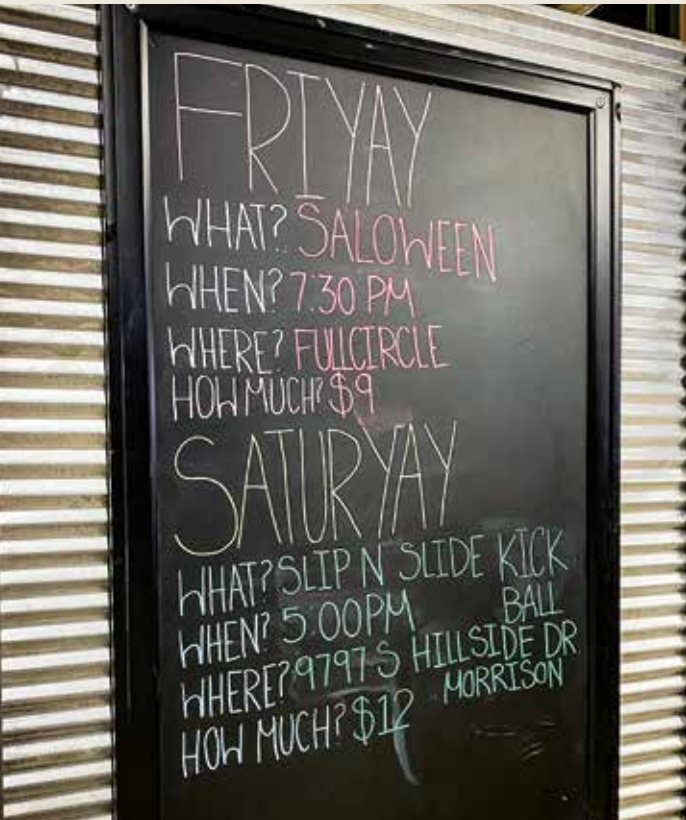 FRIYAY
WHAT? SALOWEEN
WHEN? 7:30 PM
WHERE? FULLCIRCLE
HOW MUCH? $9
SATURYAY
WHAT? SLIP N SLIDE KICK
BALL
WHEN? 5:00PM
WHERE? 9797 S HILLSIDE DR
MORRISON
HOW MUCH? $12